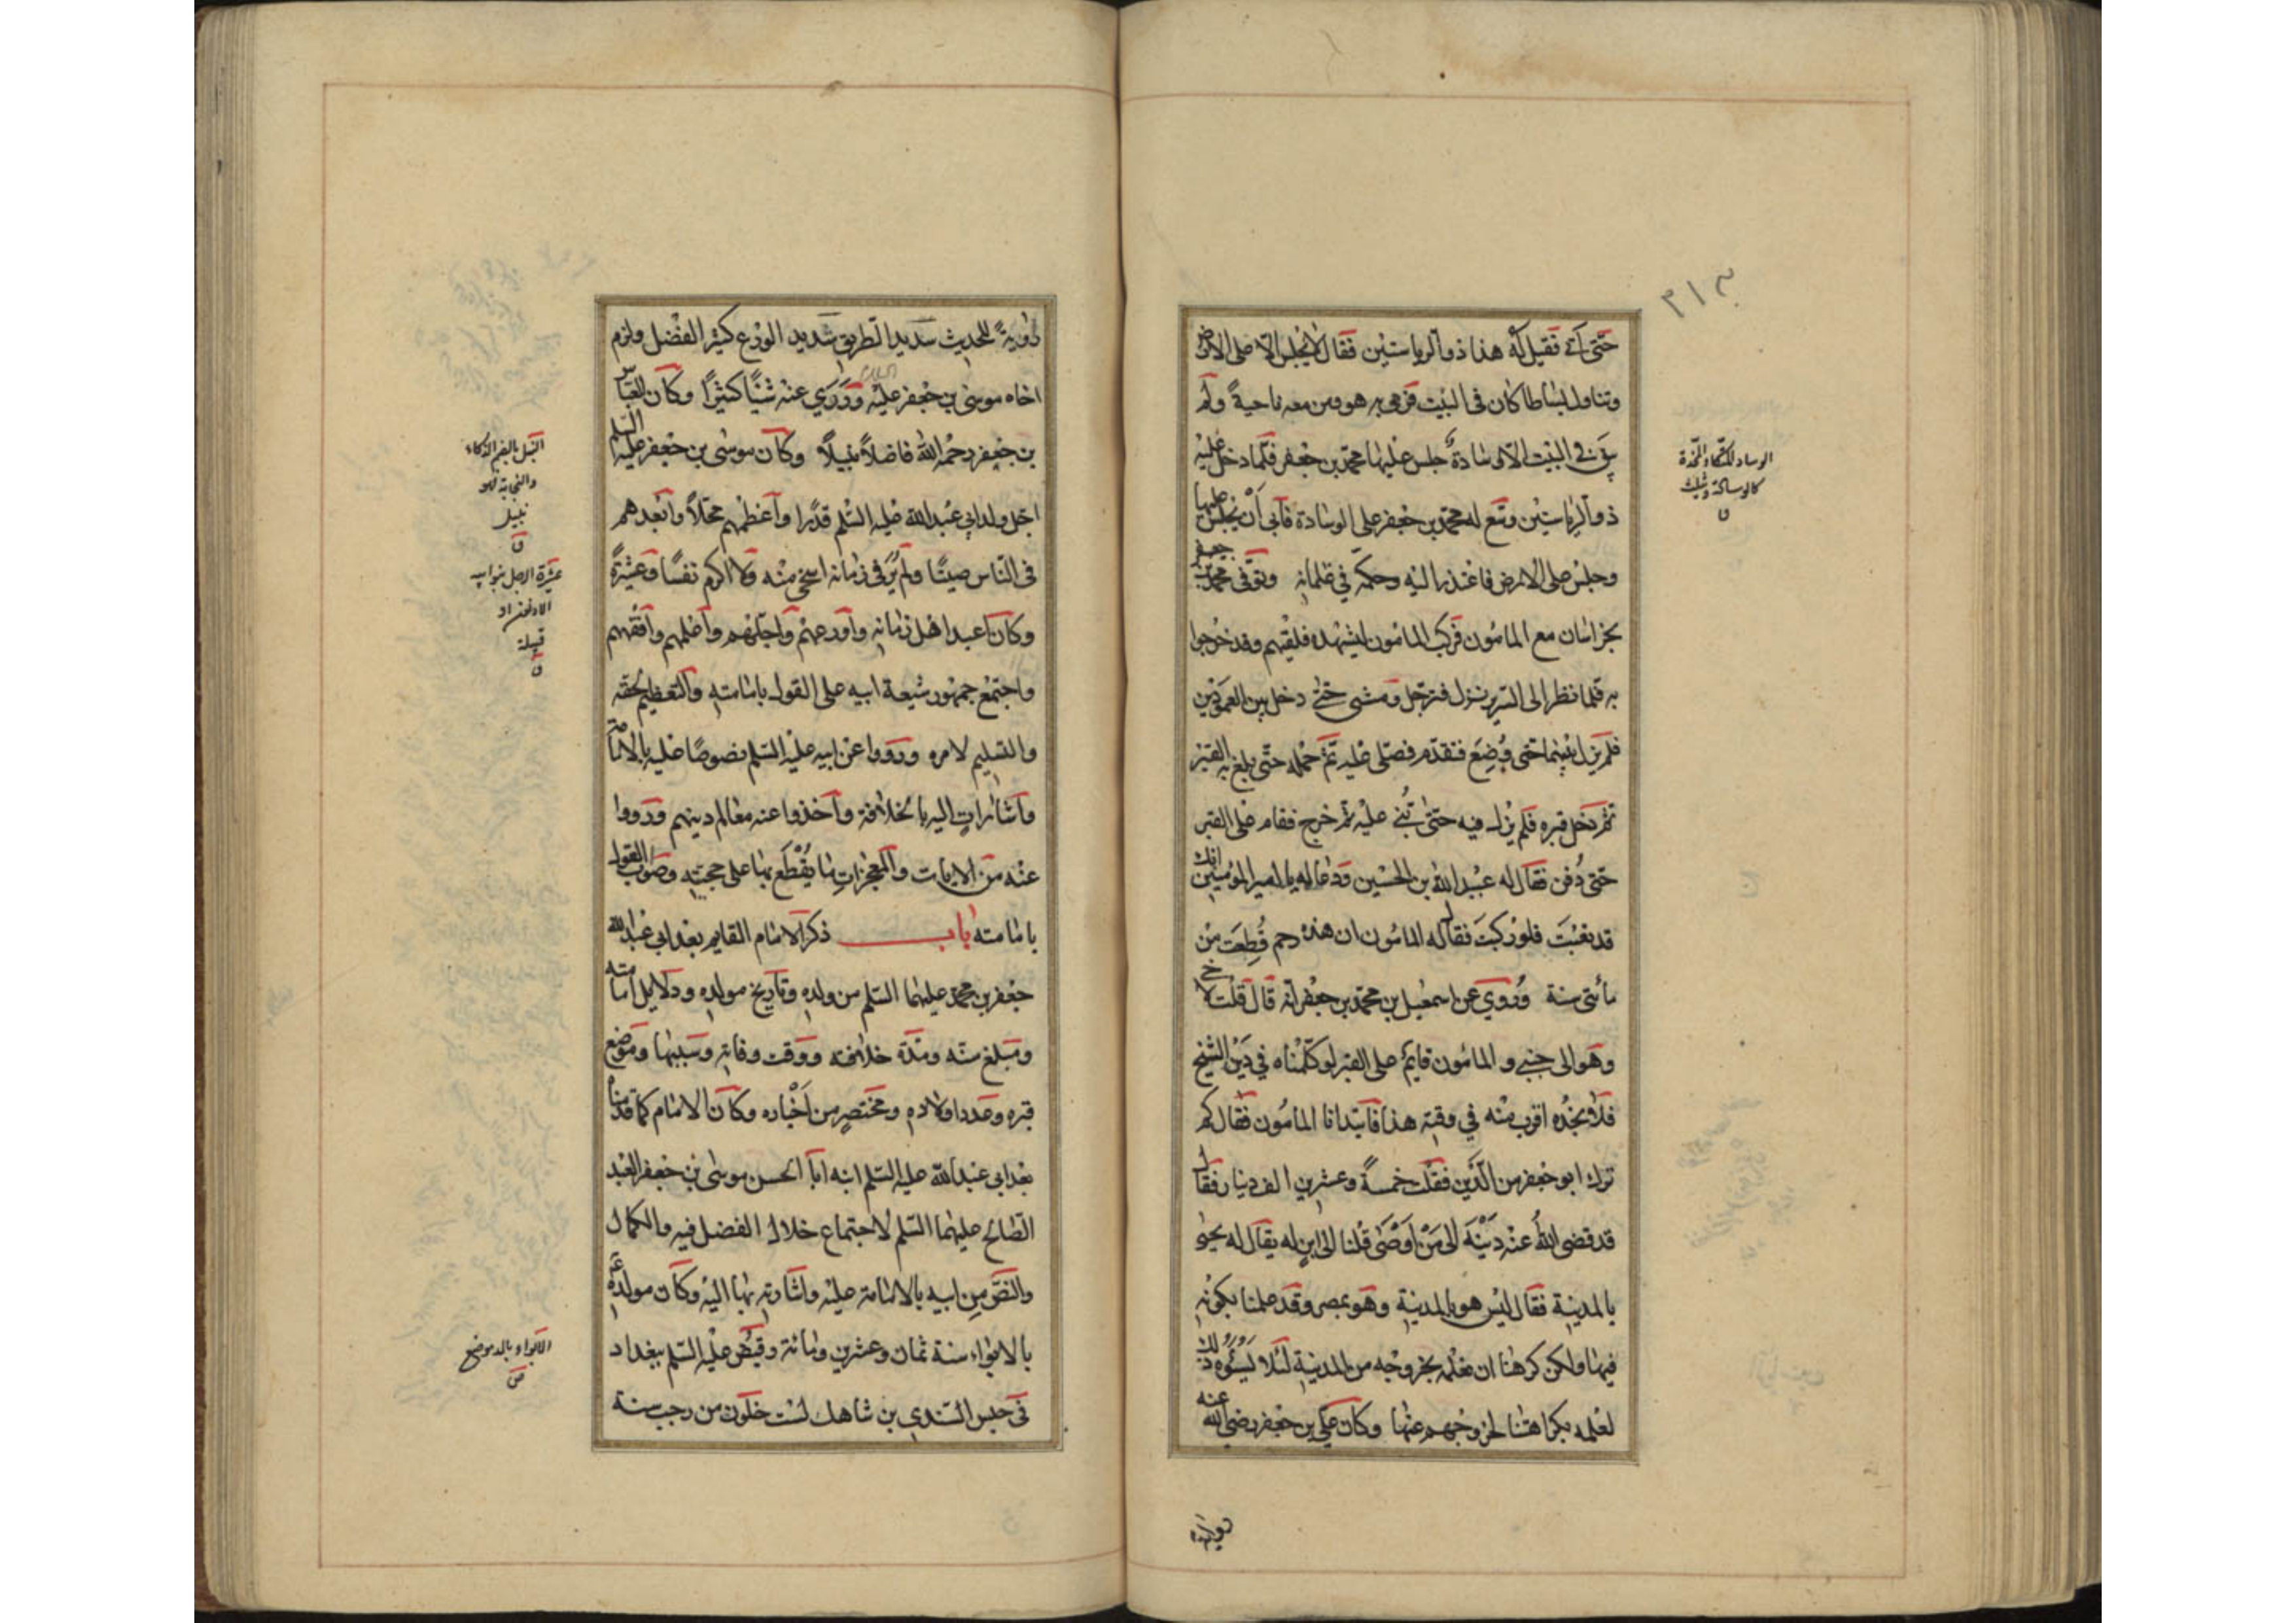 ٣١٣
حتى أتى فقيل له هذا ذو الرياستين فقال لا يجلس الا على الارض
وتناول بساطا كان في البيت فرمى به هو ومن معه ناحية ولم
يبق في البيت الا وسادة جلس عليها محمد بن جعفر فلما دخل عليه
ذو الرياستين وسع له محمد بن جعفر على الوسادة فابى أن يجلس عليها
وجلس على الارض فاعتذر اليه وحكمه في غلمانه وتوفى محمد بن جعفر
بخراسان مع المامون فركب المامون ليشهده فلقيهم وقد خرجوا
به فلما نظر الى السرير نزل فترجل ومشى حتى دخل بين العمودين
فلم يزل بينهما حتى وُضِعَ فتقدم فصلى عليه ثم حمله حتى بلغ به القبر
ثم دخل قبره فلم يزل فيه حتى بُني عليه ثم خرج فقام على القبر
حتى دُفن فقال له عبيد الله بن الحسين ودعا له يا امير المؤمنين انك
قد تعبت فلو ركبتَ فقال له المامون ان هذه رحم قُطِعَت من
مأتى سنة ورُوي عن اسمعيل بن محمد بن جعفر انه قال قلت لاخي
وهو الى جنبي والمامون قايم على القبر لو كلمناه في دَيْن الشيخ
فلا نجده اقرب منه في وقته هذا فابتدانا المامون فقال كم
ترك ابو جعفر من الدَّين فقلت خمسةً وعشرين الف دينار فقال
قد قضى اللهُ عنه دَيْنَه الى مَنْ اَوْصَى قلنا الى ابن له يقال له يحيى
بالمدينة فقال ليس هو بالمدينة وهو بمصر وقد علمنا بكونه
فيها ولكن كرهنا ان نعلمه بخروجه من المدينة لئلا يسُوءه ذلك
لعلمه بكراهتنا لخروجهم عنها وكان علي بن جعفر رضي الله عنه
الوساد المتكأ والمخدة
كالوسادة ويثلث
ق
راوية
راويةً للحديث سديد الطريق شديد الورع كثير الفضل ولزم
اخاه موسى بن جعفر عليه السلام ورَوَي عنه شيئًا كثيرًا وكان العباس
بن جعفر رحمه الله فاضلاً نبيلاً وكان موسى بن جعفر عليه السلم
اجل ولد ابي عبد الله عليه السلم قدرا وأعظمهم محلاً وأبعدهم
في الناس صيتًا ولم يُرَ في زمانه اسخى منه ولا اكرم نفسًا وعشرةً
وكان اعبد اهل زمانه وأورعهم وأجلهم وأعلمهم وأفقههم
واجتمع جمهور شيعة ابيه على القول بامامته والتعظيم لحقه
والتسليم لامره ورووا عن ابيه عليه السلم نصوصًا عليه بالامامة
وأشاراتٍ اليه بالخلافة وأخذوا عنه معالم دينهم ورووا
عنه من الايات والمعجزات ما يُقْطَع بها على حجته وصوب القول
بامامته باب ذكر الامام القايم بعد ابي عبد الله
جعفر بن محمد عليهما السلم من ولده وتاريخ مولده ودلايل امامته
ومبلغ سنه ومدة خلافته ووقت وفاته وسببها وموضع
قبره وعدد اولاده ومختصرٍ من اَخْباره وكان الامام كما قدمنا
بعد ابي عبد الله عليه السلم ابنه ابا الحسن موسى بن جعفر العبد
الصالح عليهما السلم لاجتماع خلال الفضل فيه والكمال
والنصّ مِن ابيه بالامامة عليه واشارته بها اليه وكان مولده ع
بالابواء سنة ثمان وعشرين ومائة وقُبِض عليه السلم ببغداد
في حبس السندي بن شاهك لست خلون من رجب سنة
النبل بالضم الذكاء
والنجابة فهو
نبيل
ق
عشرة الرجل بنو ابيه
الادنون او
قبيلته
ق
الابواء بالمد موضع
ص